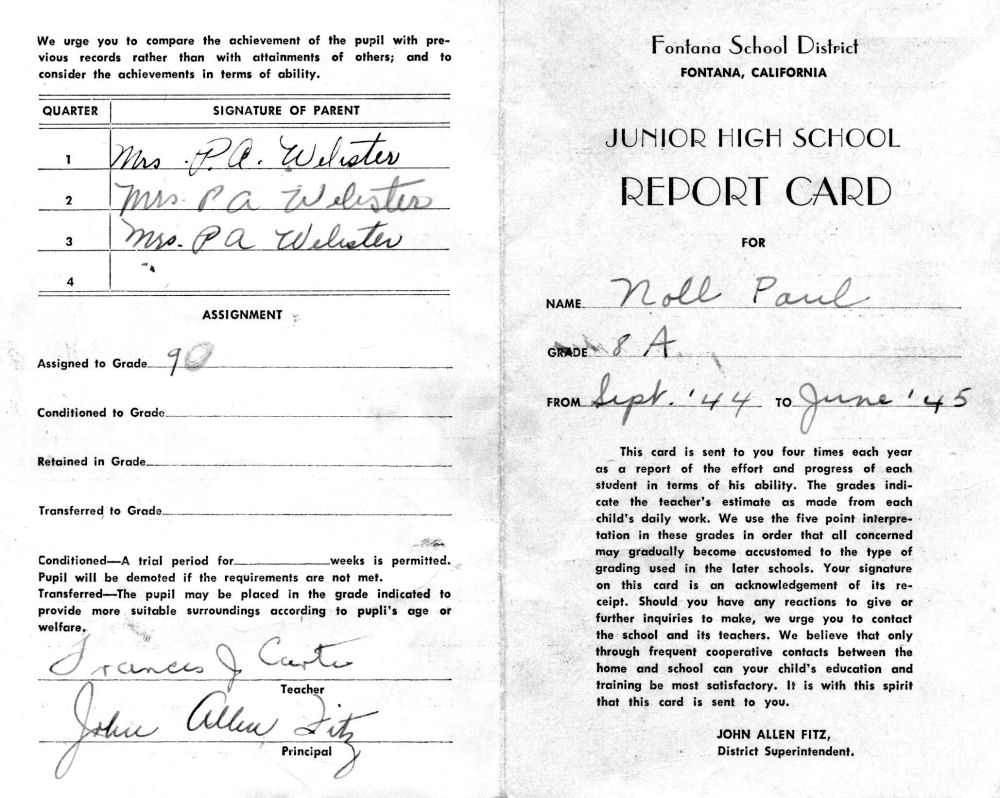 We urge you to compare the achievement of the pupil with pre-
vious records rather than with attainments of others; and to
consider the achievements in terms of ability.
QUARTER SIGNATURE OF PARENT
1 Mrs. P.A. Webster
2 Mrs. P A Webster
3 Mrs. P A Webster
4
ASSIGNMENT
Assigned to Grade 9
Conditioned to Grade
Retained in Grade
Transferred to Grade
Conditioned—A trial period for weeks is permitted.
Pupil will be demoted if the requirements are not met.
Transferred—The pupil may be placed in the grade indicated to
provide more suitable surroundings according to pupli's age or
welfare.
Frances J Carter
Teacher
John Allen Fitz
Principal
Fontana School District
FONTANA, CALIFORNIA
JUNIOR HIGH SCHOOL
REPORT CARD
FOR
NAME Noll Paul
GRADE 8 A
FROM Sept. '44 TO June '45
This card is sent to you four times each year
as a report of the effort and progress of each
student in terms of his ability. The grades indi-
cate the teacher's estimate as made from each
child's daily work. We use the five point interpre-
tation in these grades in order that all concerned
may gradually become accustomed to the type of
grading used in the later schools. Your signature
on this card is an acknowledgement of its re-
ceipt. Should you have any reactions to give or
further inquiries to make, we urge you to contact
the school and its teachers. We believe that only
through frequent cooperative contacts between the
home and school can your child's education and
training be most satisfactory. It is with this spirit
that this card is sent to you.
JOHN ALLEN FITZ,
District Superintendent.